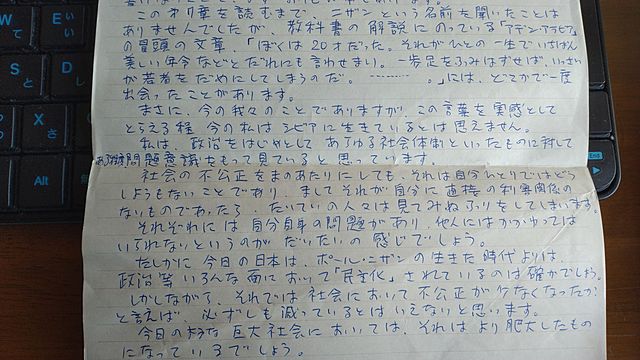 このオク章を読むまで、ニザンという名前を聞いたことは
ありませんでしたが、教科書の解説にのっている「アデン・アラビア」
の冒頭の文章、「ぼくは20才だった。それがひとの一生でいちばん
美しい年令などとだれにも言わせまい。一歩足をふみはずせば、いっさい
が若者をだめにしてしまうのだ。………。」には、どこかで一度
出会ったことがあります。
まさに、今の我々のことでありますが、この言葉を実感として
とらえる程、今の私はシビアに生きているとは思えません。
私は、政治をはじめとして あらゆる社会体制といったものに対して
ある種問題意識をもって見ていると思っています。
社会の不公正をまのあたりにしても、それは自分ひとりではどう
しようもないことであり、ましてそれが自分に直接の利害関係の
ないものであったら、だいていの人々は見てみぬふりをしてしまいます。
それぞれには自分自身の問題があり、他人にはかかわっては
いられないというのがだいたいの感じでしょう。
たしかに今日の日本は、ポール・ニザンの生きた時代よりは、
政治等いろんな面において「民主化」されているのは確かでしょう。
しかしながら、それでは社会において不公正が少なくなったか?
と言えば、必ずしも減っているとはいえないと思います。
今日のような巨大社会においては、それはより肥大したもの
になっているでしょう。
Alt
End
W
て
E
い
S
と
D
し
X
さ
え